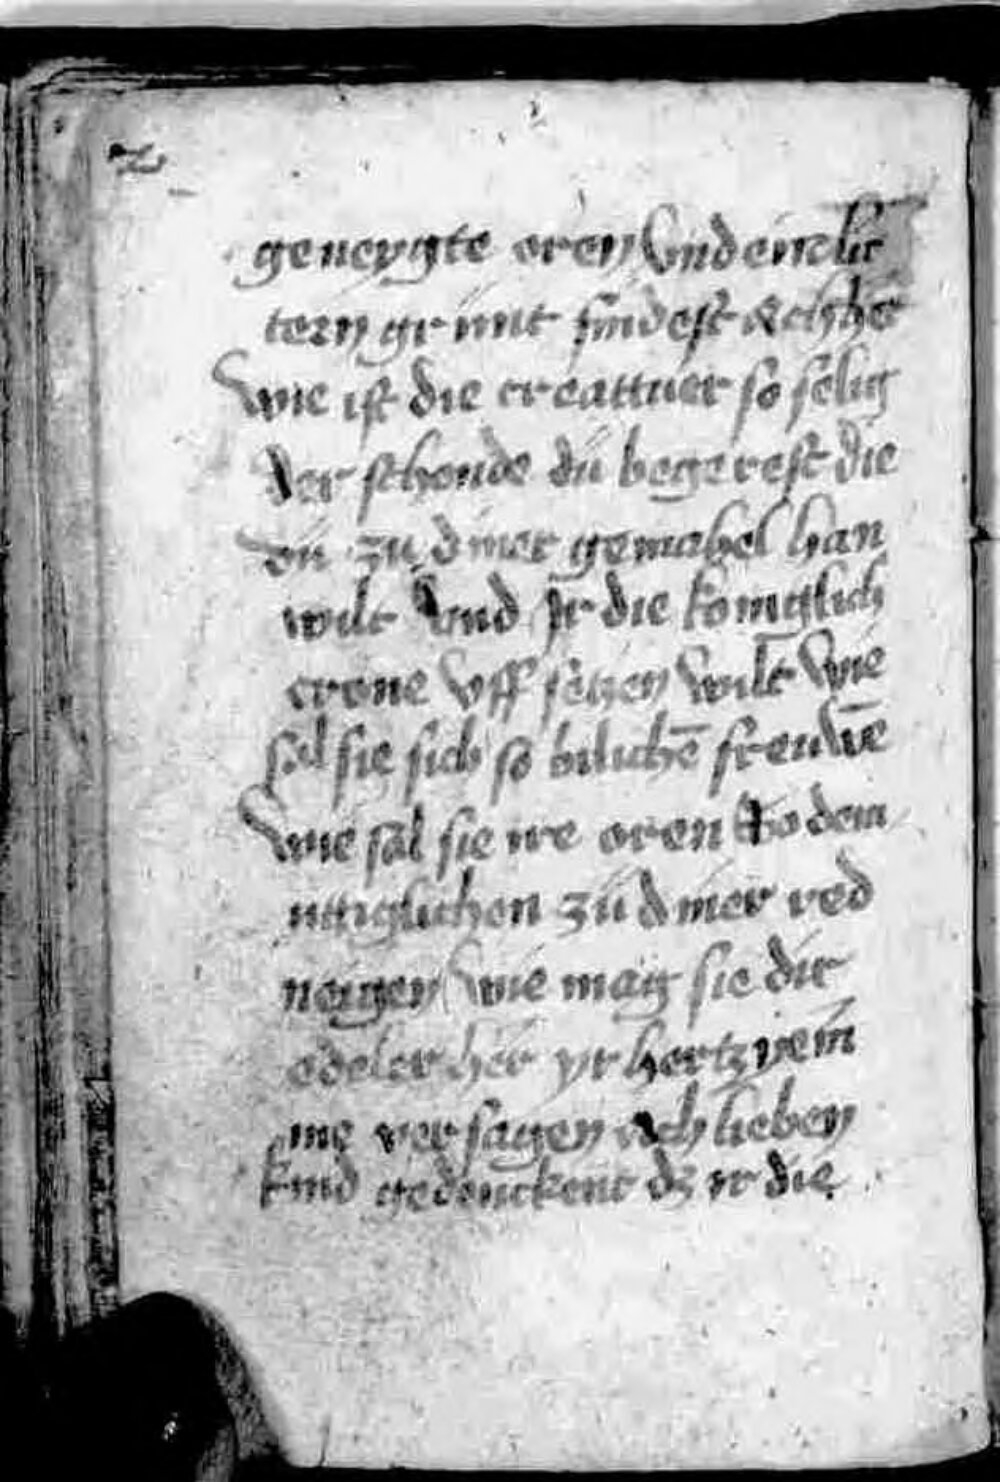 geneygte oren vnd ein lut
tern grunt findest Ach her
wie ist die creattuer so selig
der schonde du begerest die
du zu diner gemahel han
wilt vnd Jr die koniglich
crone vff setzen wilt wie
sal sie sich so bilichē freuwē
wie sal sie ire oren so dem
uttiglichen zu diner red
neigen wie mag sie dir
edeler her yr hertz yem
me versagen Ach lieben
kind gedenckent dz ir die